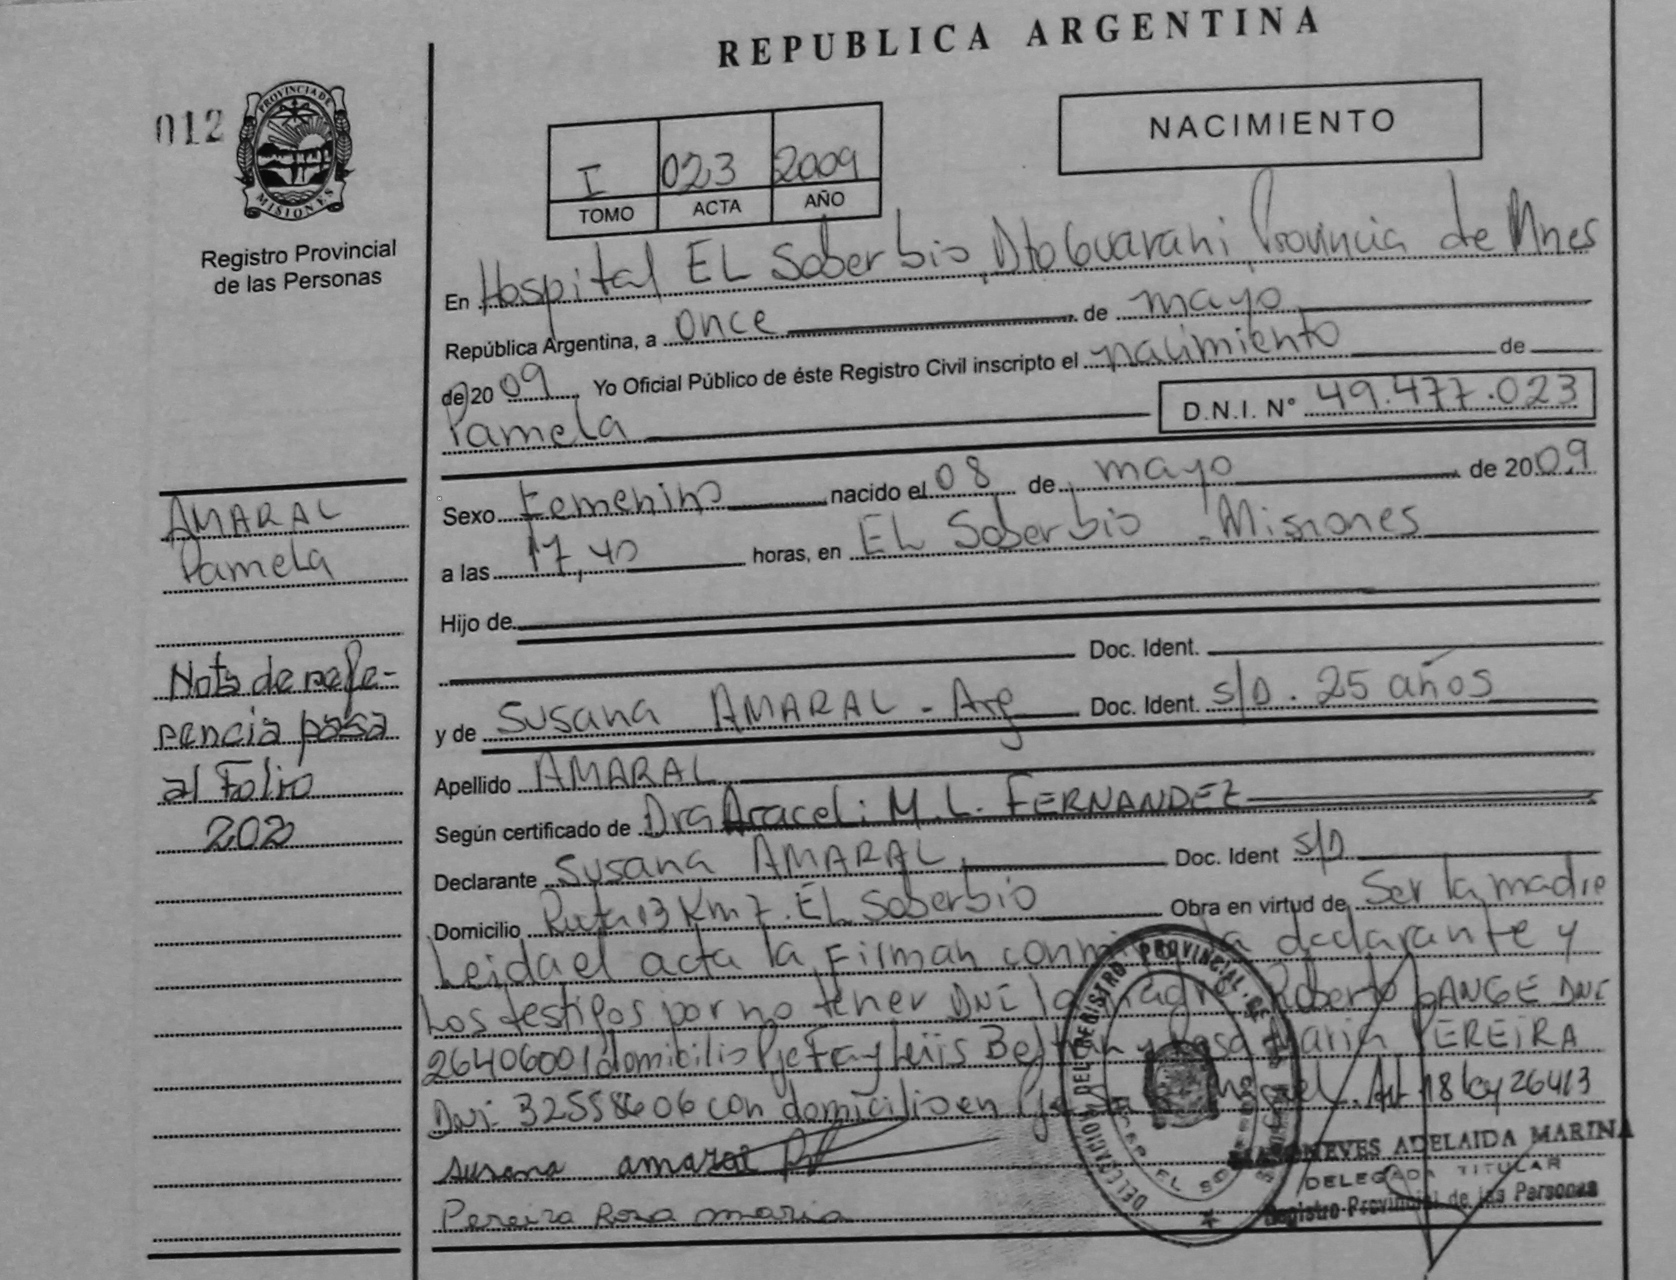 REPUBLICA ARGENTINA
012
PROVINCIA DE
MISIONES
Registro Provincial
de las Personas
I 023 2009
TOMO ACTA AÑO
NACIMIENTO
En Hospital EL Soberbio, Dto Guarani, Provincia de Mnes
República Argentina, a once de mayo
de 2009 Yo Oficial Público de éste Registro Civil inscripto el nacimiento de
Pamela D.N.I. N° 49.477.023
Sexo Femenino nacido el 08 de mayo de 2009
a las 17,40 horas, en EL Soberbio - Misiones
Hijo de
Doc. Ident.
y de Susana AMARAL - Arg Doc. Ident. S/D. 25 años
Apellido AMARAL
Según certificado de Dra Araceli M. L. FERNANDEZ
Declarante Susana AMARAL, Doc. Ident S/D
Domicilio Ruta 13 Km 7. EL Soberbio Obra en virtud de Ser la madre
Leida el acta la Firman conmigo la declarante y
Los testigos por no tener DNI la madre Roberto DNI
26406001 domicilio Pje Fray Luis Beltran y Rosa Maria PEREIRA
DNI 32558606 con domicilio en Art 18 Ley 26413
AMARAL
Pamela
Nota de refe-
rencia pasa
al Folio
202
susana amaral
Pereira Rosa maria
DELEGACION DEL REGISTRO PROVINCIAL DE
EL SOBERBIO
NEVES ADELAIDA MARINA
DELEGADA TITULAR
Registro Provincial de las Personas